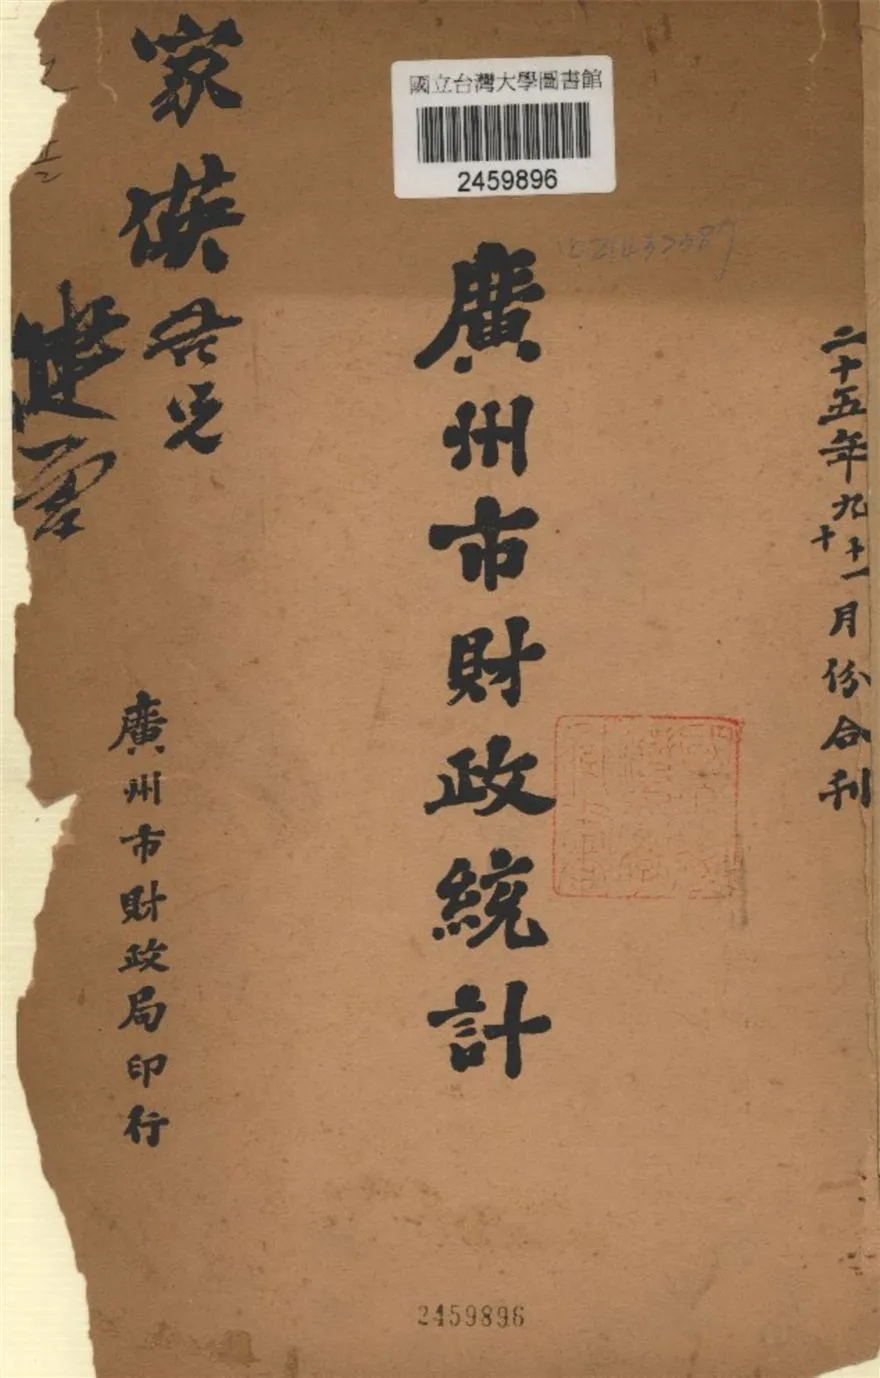 國立台灣大學圖書館
2459896
二十五年九十十一月份合刊
廣州市財政統計
廣州市財政局印行
家
君兄
2459896